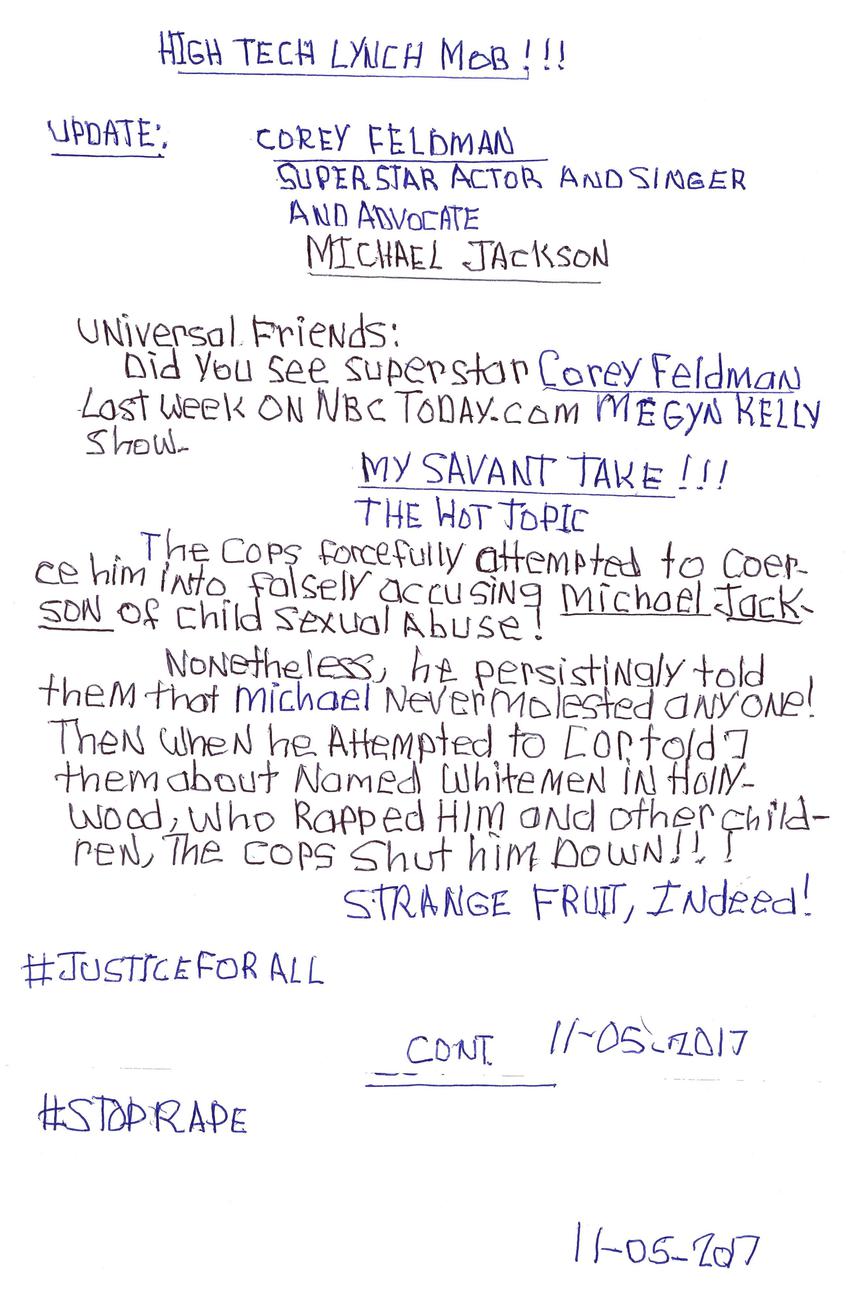 HIGH TECH LYNCH MOB!!!
UPDATE: COREY FELDMAN
SUPERSTAR ACTOR AND SINGER
AND ADVOCATE
MICHAEL JACKSON
UNiversal Friends:
Did You see superstar Corey Feldman
Last week ON NBC TODAY.com MEGYN KELLY
show.
MY SAVANT TAKE!!!
THE HOT TOPIC
The cops forcefully attempted to coer-
ce him into falsely accusing Michael Jack-
SON of child sexual Abuse!
NoNetheless, he persistingly told
them that michael Never molested anyone!
Then when he Attempted to [or told]
them about Named White meN iN Holly-
wood, who Rapped HIM and other child-
ren, The cops shut him DOWN!!!
STRANGE FRUIT, INdeed!
#JUSTICEFORALL
CONT 11-05-2017
#STOPRAPE
11-05-2017